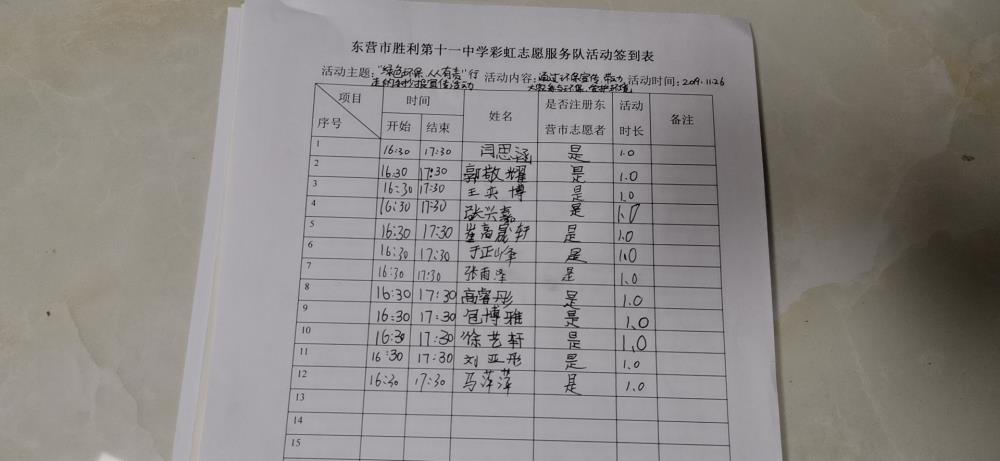 东营市胜利第十一中学彩虹志愿服务队活动签到表
活动主题:“绿色环保,人人有责”行 活动内容:通过环保宣传 带动 活动时间:2019.11.26
走的手抄报宣传活动 大家参与环保、爱护环境
项目 时间 姓名 是否注册东 活动 备注
序号 开始 结束 营市志愿者 时长
1 16:30 17:30 闫思涵 是 1.0
2 16:30 17:30 郭敬耀 是 1.0
3 16:30 17:30 王奕博 是 1.0
4 16:30 17:30 张兴嘉 是 1.0
5 16:30 17:30 崔高晟轩 是 1.0
6 16:30 17:30 于正峰 是 1.0
7 16:30 17:30 张雨泽 是 1.0
8 16:30 17:30 高睿彤 是 1.0
9 16:30 17:30 包博雅 是 1.0
10 16:30 17:30 徐艺轩 是 1.0
11 16:30 17:30 刘亚彤 是 1.0
12 16:30 17:30 马萍萍 是 1.0
13
14
15